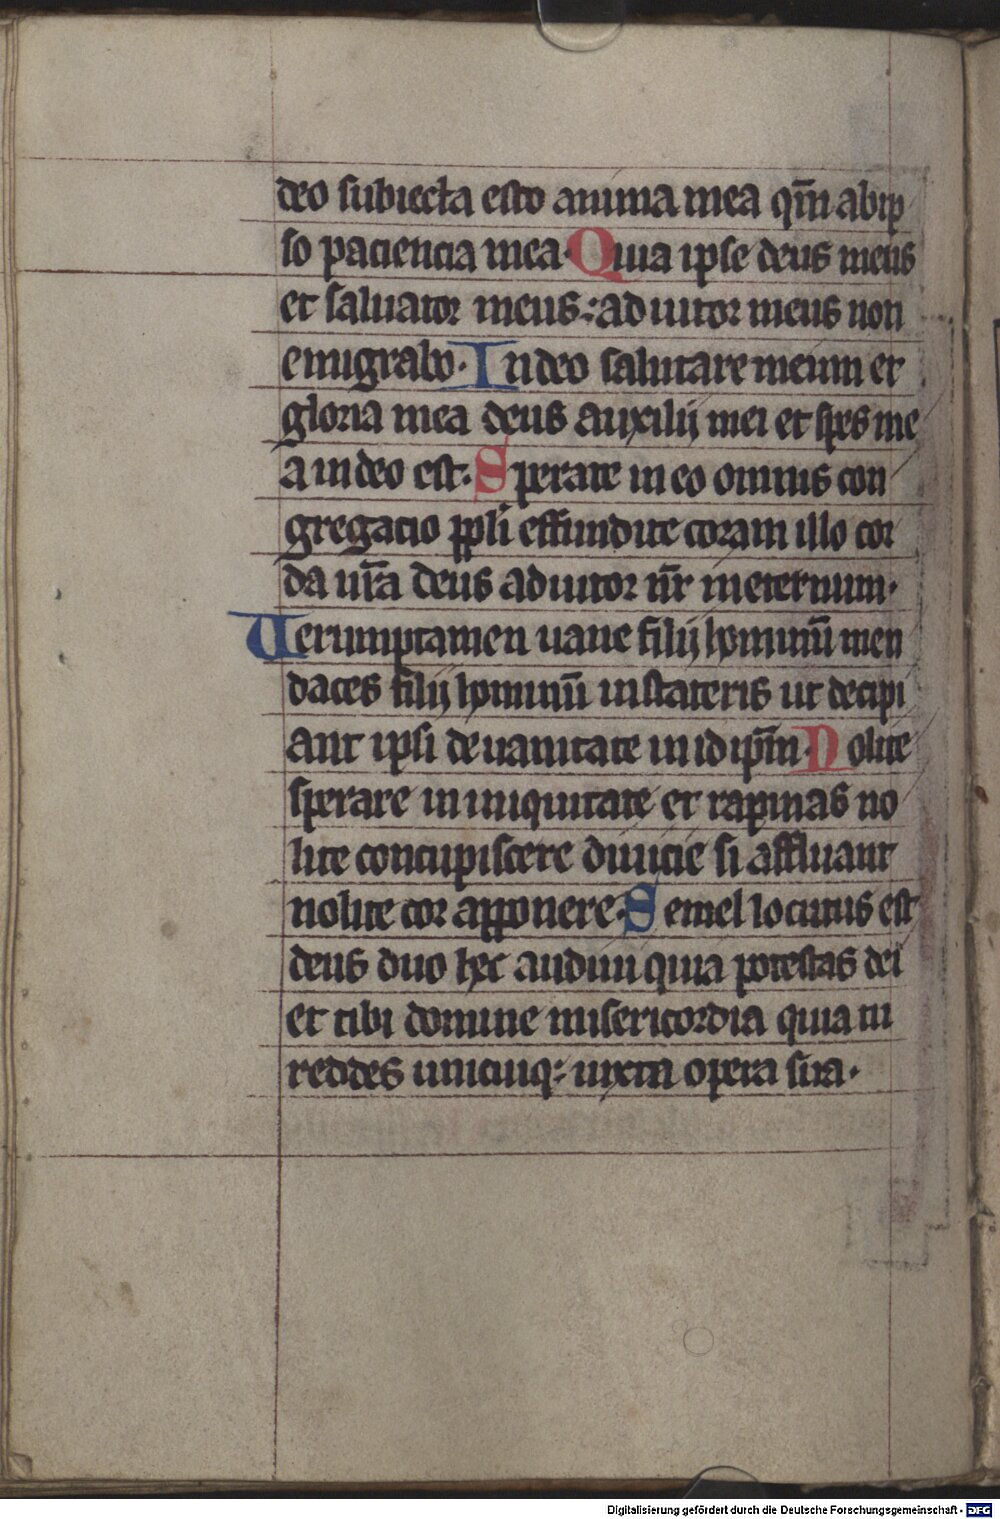 deo subiecta esto anima mea qm̅ ab ip
so paciencia mea· Quia ipse deus meus
et saluator meus: adiutor meus non
emigrabo· In deo salutare meum et
gloria mea deus auxilij mei et spes me
a in deo est· Sperate in eo omnis con
gregacio ppl̅i effundite coram illo cor
da ur̅a deus adiutor nr̅ in eternum·
Uerumptamen uane filij hominu̅ men
daces filij hominu̅ in stateris ut decipi
ant ipsi de uanitate in id ipm̅· Nolite
sperare in iniquitate et rapinas no
lite concupiscere diuicie si affluant
nolite cor apponere· Semel locutus est
deus duo hec audiui quia potestas dei
et tibi domine misericordia quia tu
reddes unicuiq; iuxta opera sua·
Digitalisierung gefördert durch die Deutsche Forschungsgemeinschaft - DFG